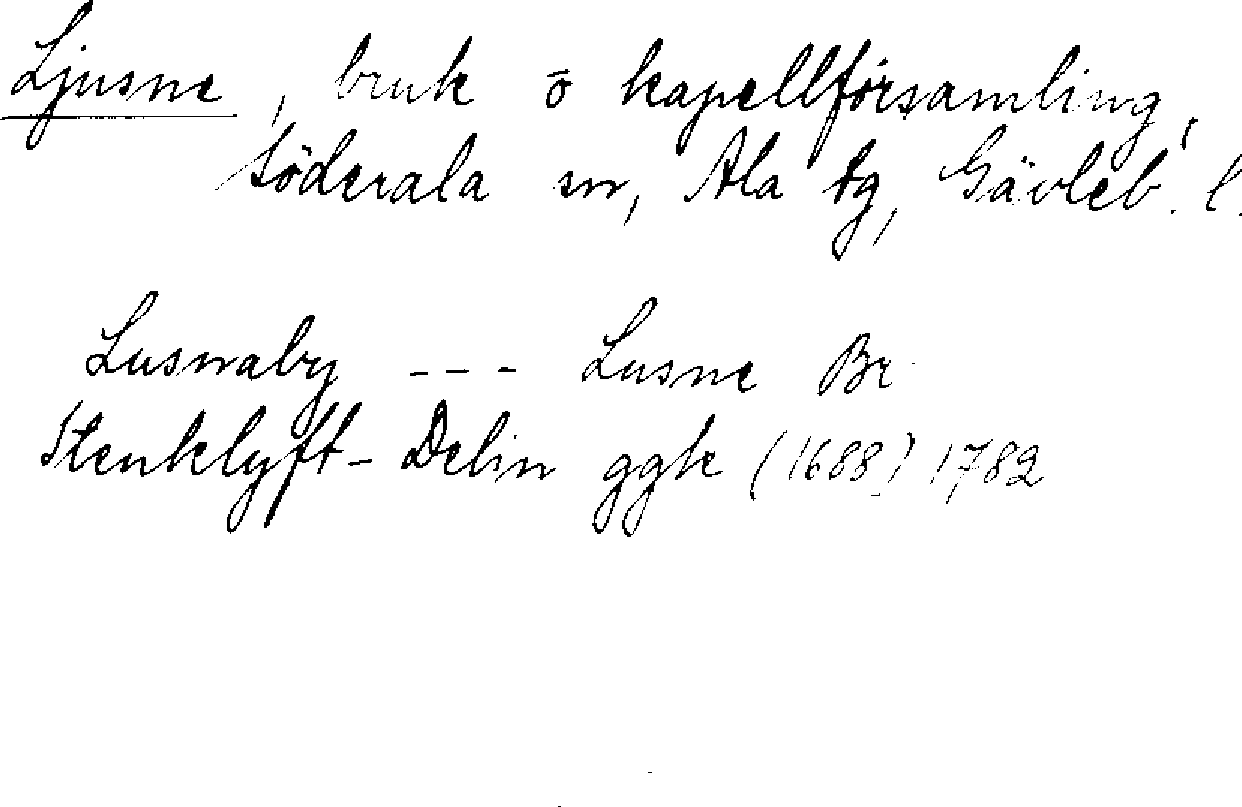 Ljusne, bruk o kapellförsamling,
Söderala sn, Ala tg, Gävleb. l.
Lusnaby --- Lusne Br
Stenklyft - Delin ggk (1688) 1782